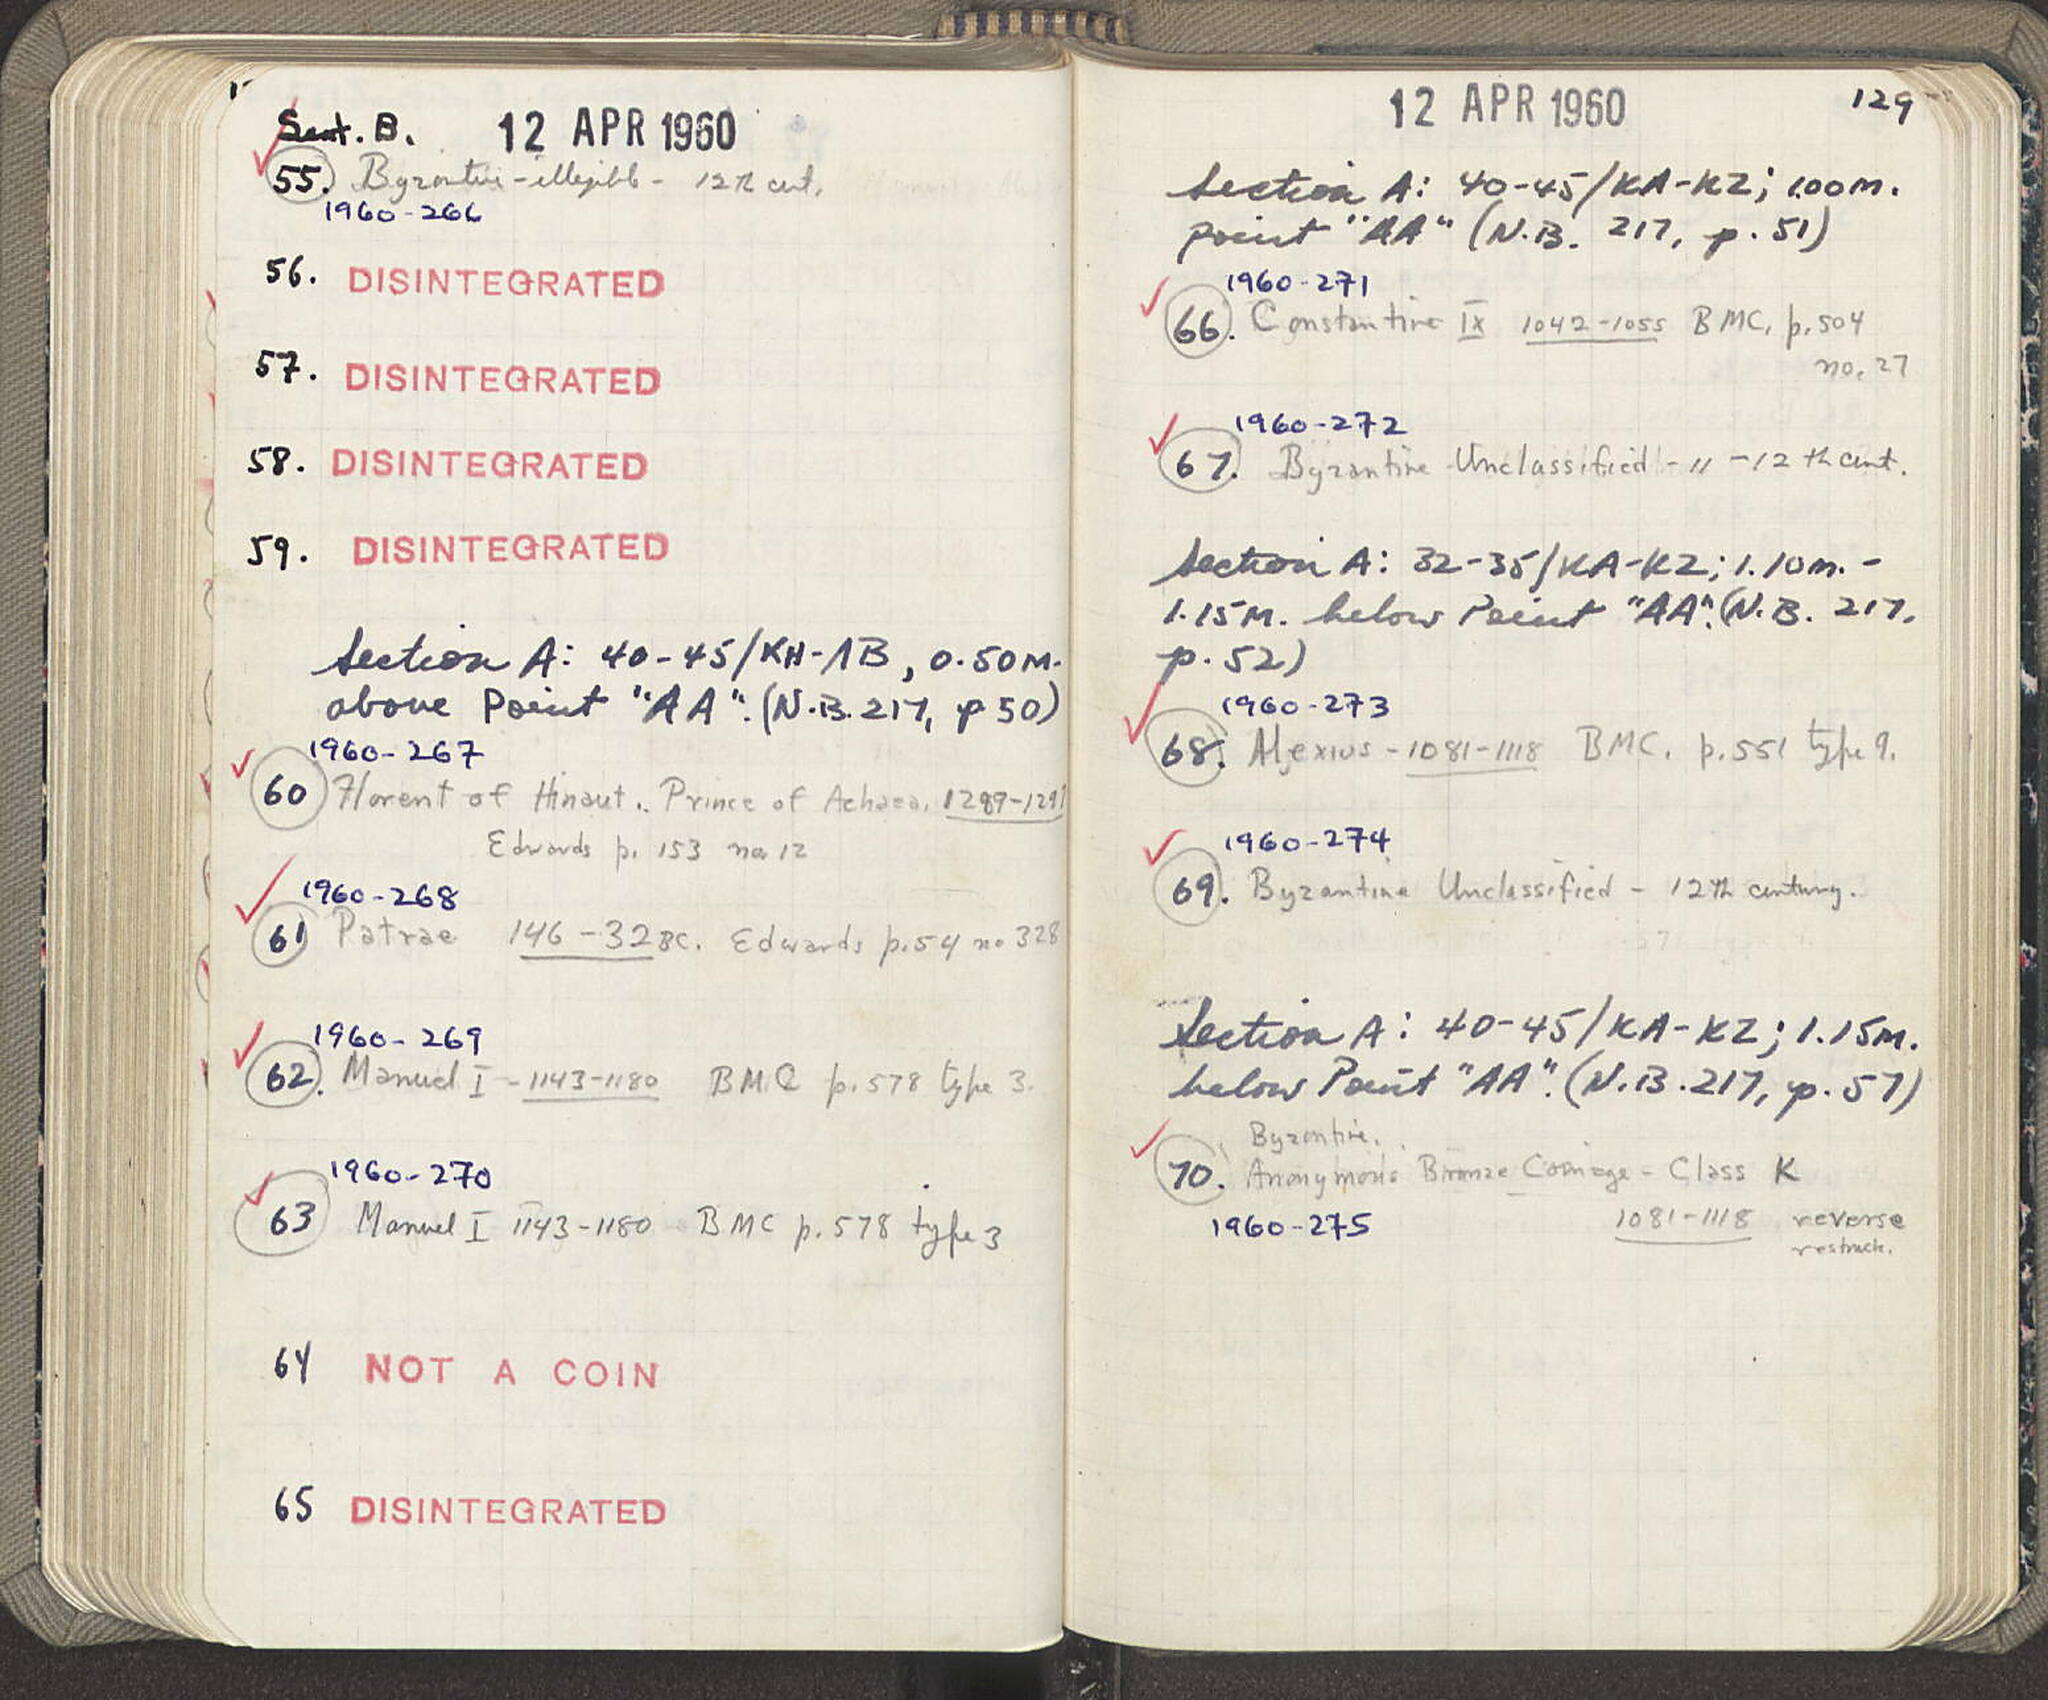 Sect. B. 12 APR 1960
55. Byzantine - illegible - 12th cent.
1960-266
56. DISINTEGRATED
57. DISINTEGRATED
58. DISINTEGRATED
59. DISINTEGRATED
Section A: 40-45/KH-ΛB, 0.50M.
above Point "AA". (N.B. 217, p 50)
1960-267
60 Florent of Hinaut.. Prince of Achaea. 1289-1297
Edwards p. 153 no 12
1960-268
61 Patrae 146-32 BC. Edwards p. 54 no 328
1960-269
62. Manuel I - 1143-1180 BMC p. 578 type 3.
1960-270
63 Manuel I 1143-1180 BMC p. 578 type 3
64 NOT A COIN
65 DISINTEGRATED
12 APR 1960 129
Section A: 40-45/KA-KZ; 1.00M.
point "AA" (N.B. 217, p. 51)
1960-271
66. Constantine IX 1042-1055 BMC. p. 504
no. 27
1960-272
67. Byzantine Unclassified - 11-12th cent.
Section A: 32-35/KA-KZ; 1.10M.-
1.15M. below Point "AA". (N.B. 217,
p. 52)
1960-273
68. Alexius - 1081-1118 BMC. p. 551 type 9.
1960-274
69. Byzantine Unclassified - 12th century.
Section A: 40-45/KA-KZ; 1.15M.
below Point "AA". (N.B. 217, p. 57)
Byzantine.
70. Anonymous Bronze Coinage - Class K
1960-275 1081-1118 reverse
restruck.